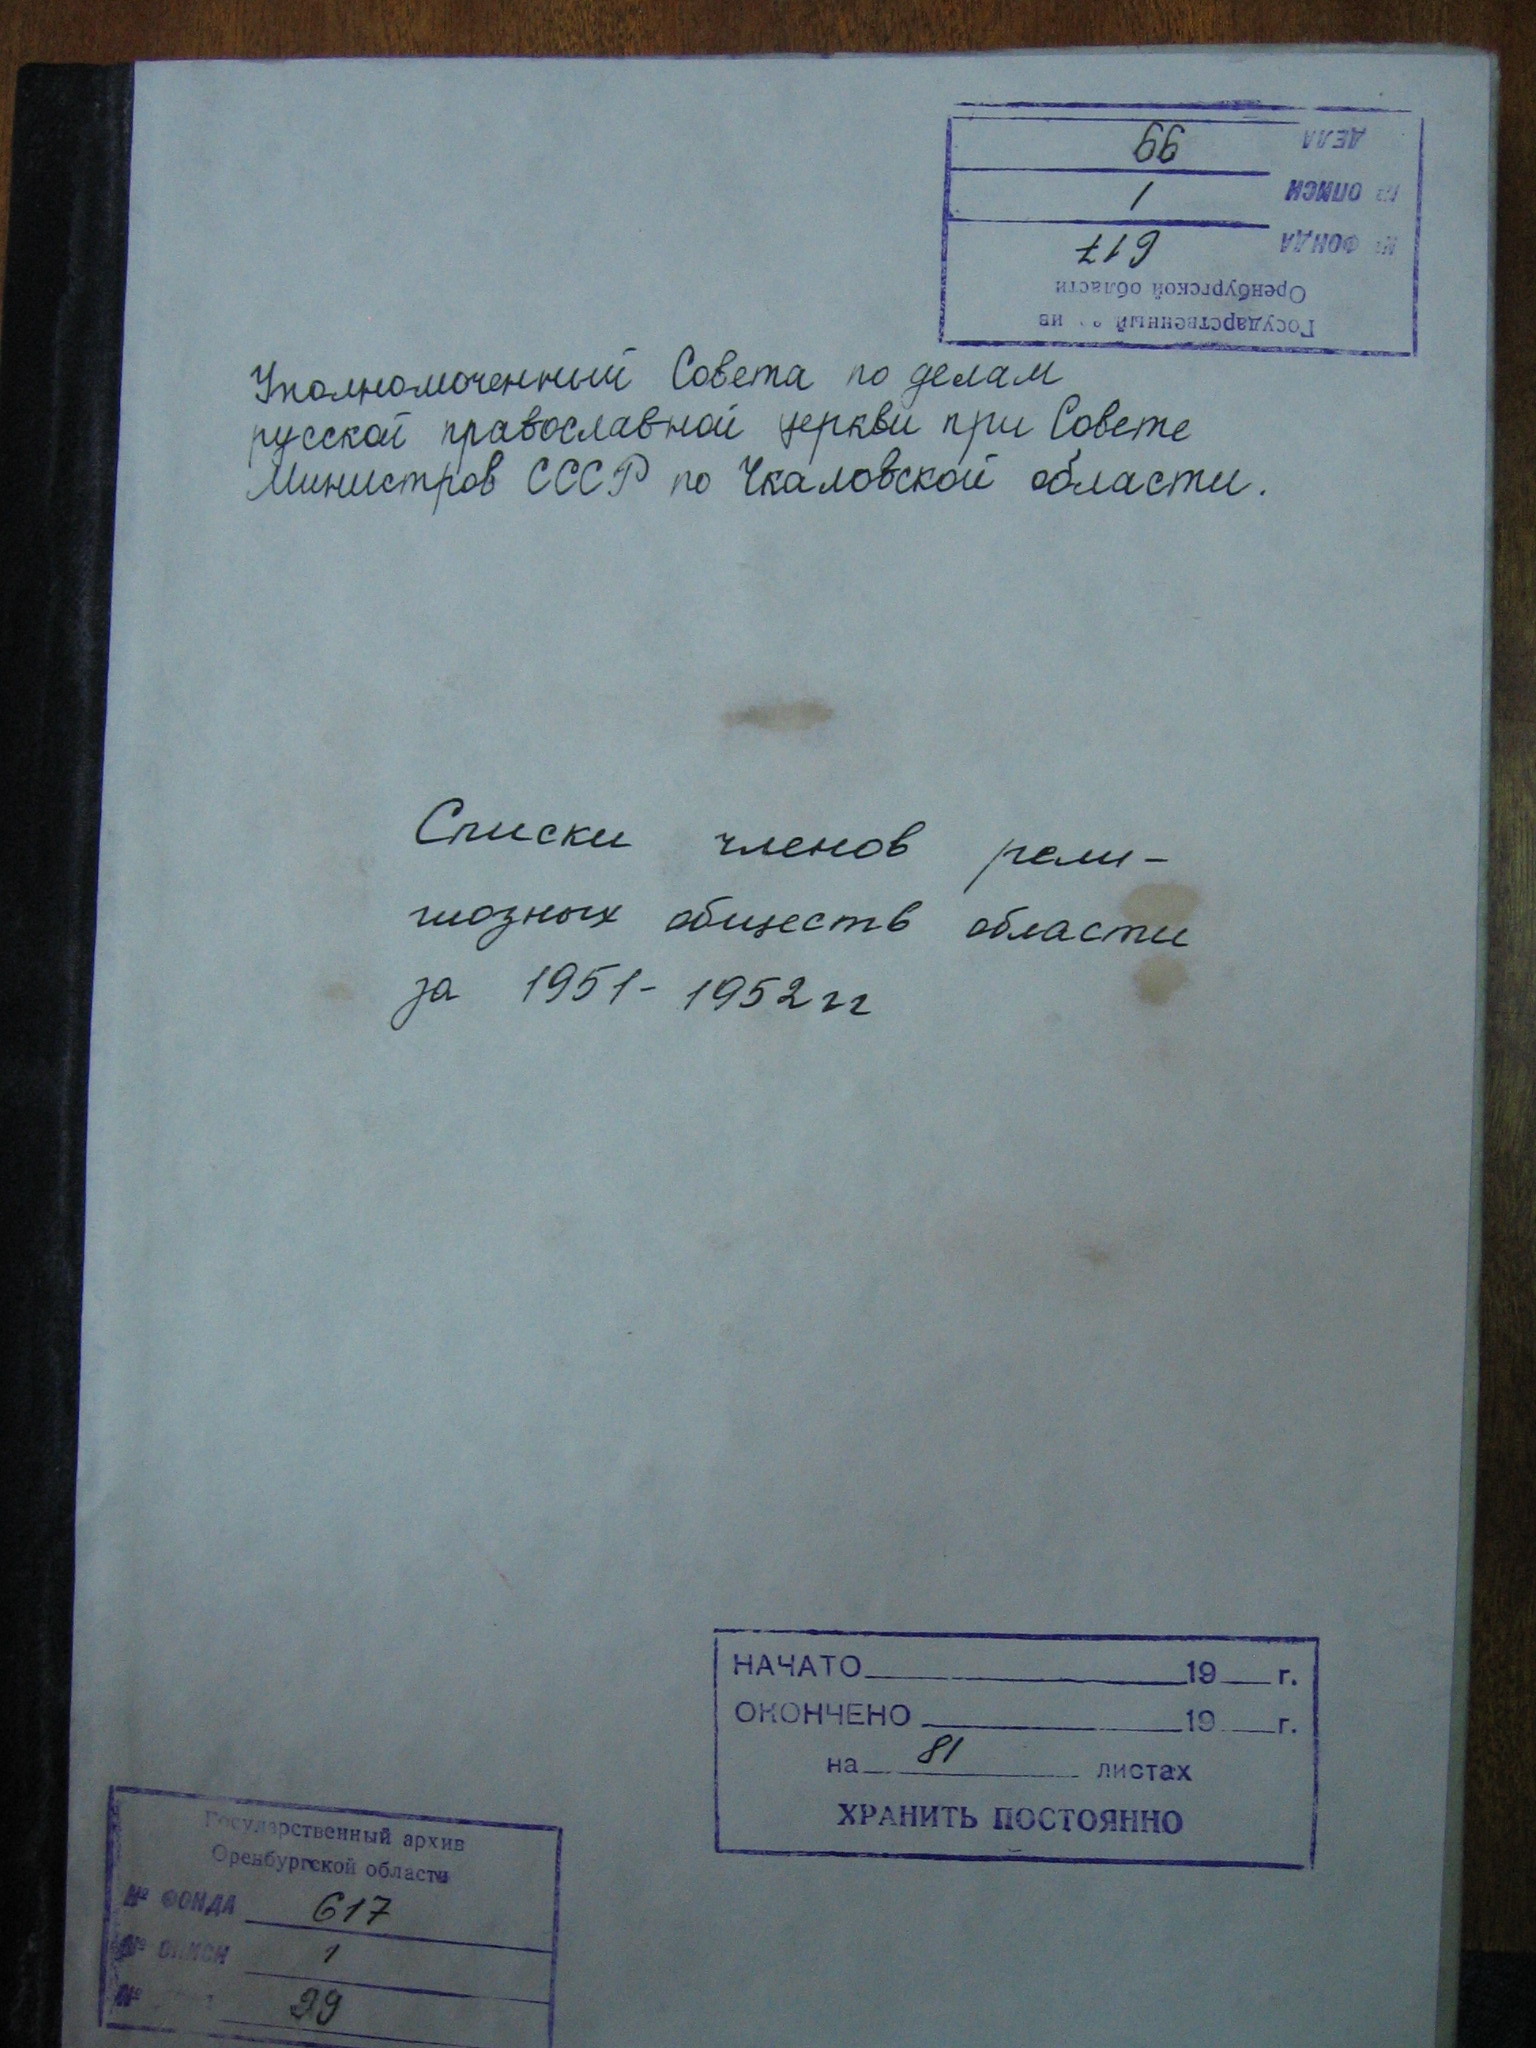 Государственный
Оренбургской области
№ ФОНДА 617
№ ОПИСИ 1
ДЕЛА 99
Уполномоченный Совета по делам
русской православной церкви при Совете
Министров СССР по Чкаловской области.
Списки членов рели-
гиозных обществ области
за 1951-1952 гг
НАЧАТО 19 г.
ОКОНЧЕНО 19 г.
на 81 листах
ХРАНИТЬ ПОСТОЯННО
Государственный архив
Оренбургской области
№ ФОНДА 617
№ ОПИСИ 1
№ 99